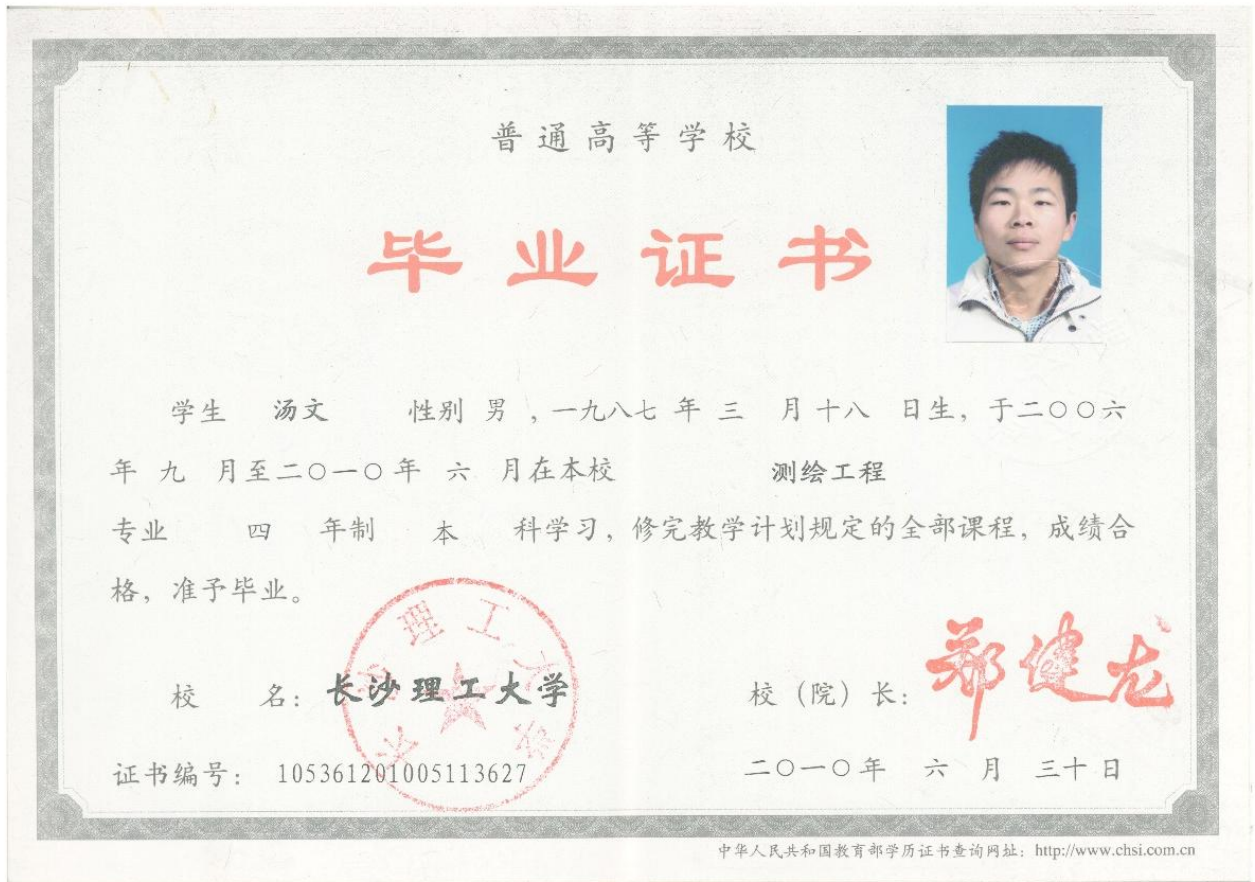 普通高等学校
毕业证书
学生 汤文 性别 男 ,一九八七 年 三 月十八 日生, 于二〇〇六
年 九 月至二〇一〇年 六 月在本校 测绘工程
专业 四 年制 本 科学习, 修完教学计划规定的全部课程, 成绩合
格, 准予毕业。
长沙理工大学
校 名: 长沙理工大学
校 (院) 长: 郑健龙
证书编号: 105361201005113627
二〇一〇年 六 月 三十日
中华人民共和国教育部学历证书查询网址: http://www.chsi.com.cn